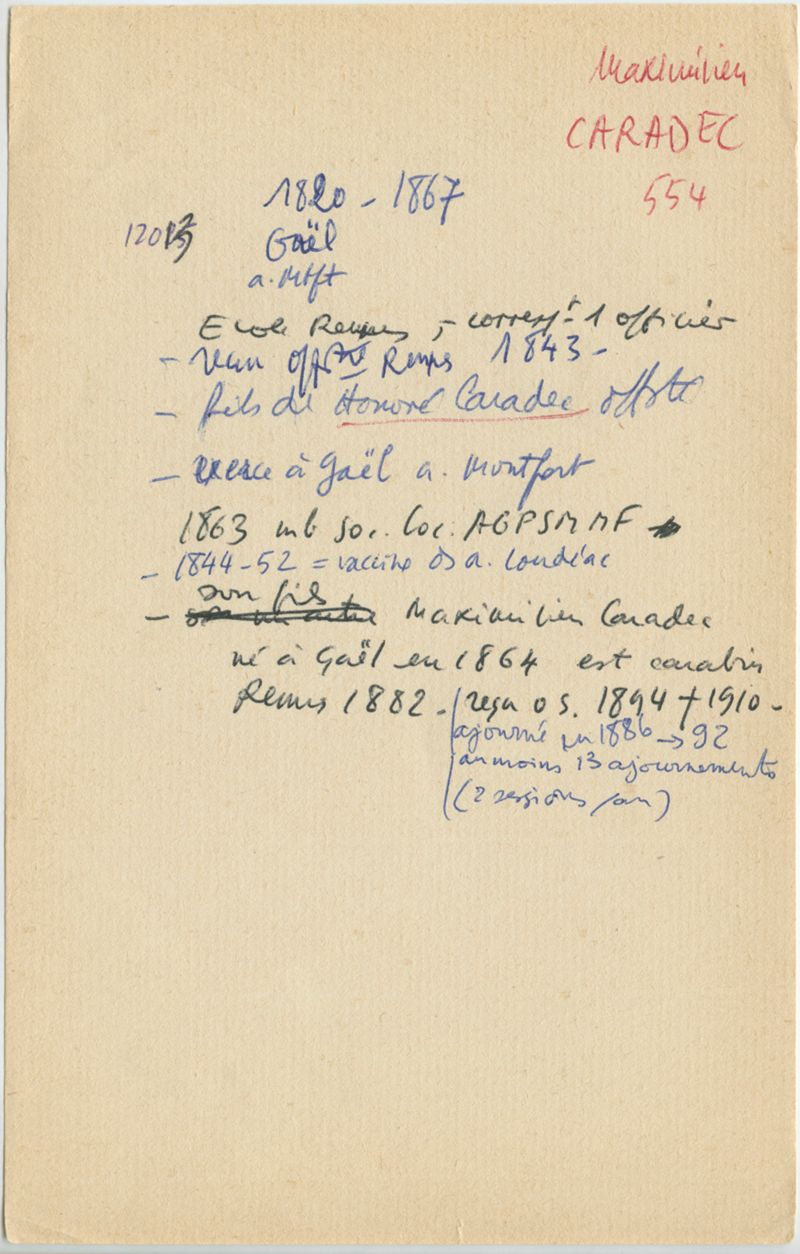 Maximilien
CARADEC
554
1820 - 1867
Gaël
a. Mtft
Ecole Rennes, - correspt 1 officier
- reçu off Rennes 1843 -
- fils de Honoré Caradec offste
- exerce à Gaël a. Montfort
1863 mb soc. loc. AGPSMMF
- 1844-52 = vaccine ds a. Loudéac
son fils
- Maximilien Caradec
né à Gaël en 1864 est carabin
Rennes 1882 - reçu o s. 1894 + 1910 -
ajourné en 1886 → 92
au moins 13 ajournements
(2 sessions / an)